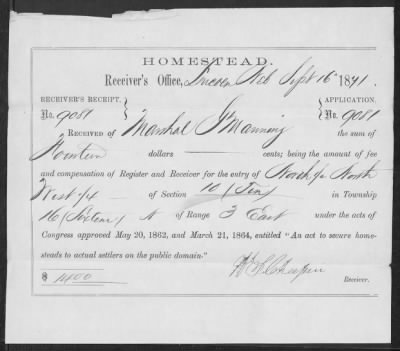 HOMESTEAD.
Receiver's Office, Lincoln Neb Sept 16" 1871.
RECEIVER'S RECEIPT. APPLICATION.
No. 9081 No. 9081
RECEIVED OF Marshal J Manning the sum of
Fourteen dollars cents; being the amount of fee
and compensation of Register and Receiver for the entry of North ½ North
West ¼ of Section 10 (Ten) in Township
16 (Sixteen) N of Range 3 East under the acts of
Congress approved May 20, 1862, and March 21, 1864, entitled "An act to secure home-
steads to actual settlers on the public domain."
$ 1400 Receiver.